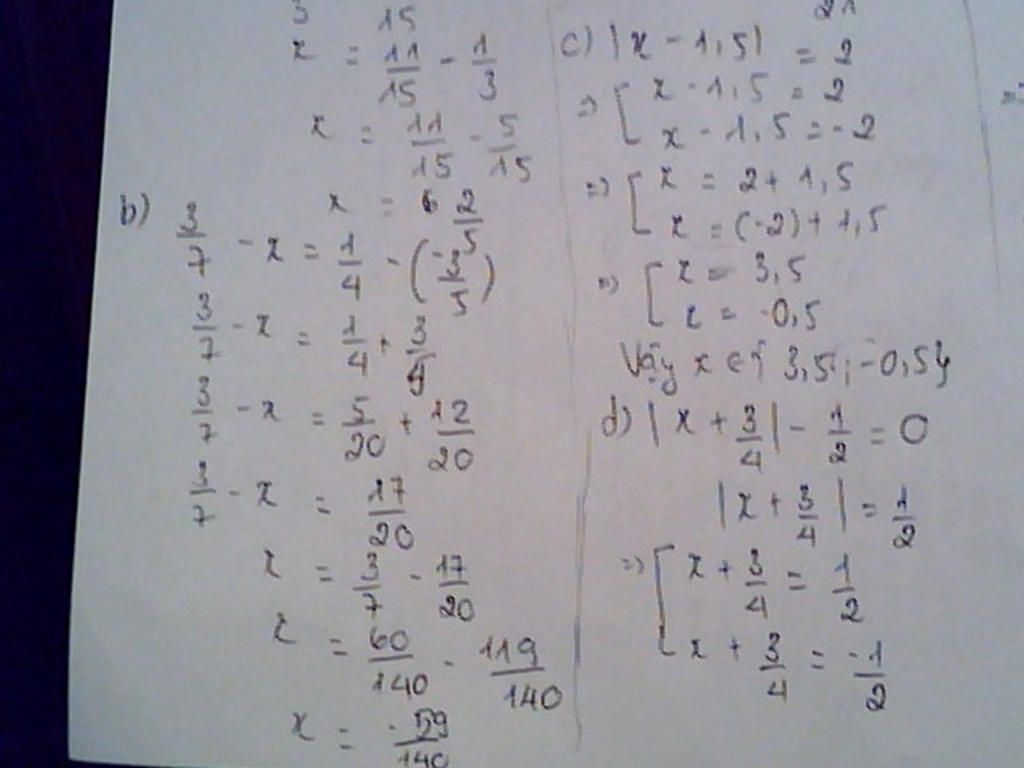 x = 11/15 - 1/3
x = 11/15 - 5/15
x = 2/5
b) 3/7 - x = 1/4 - (-3/5)
3/7 - x = 1/4 + 3/5
3/7 - x = 5/20 + 12/20
3/7 - x = 17/20
x = 3/7 - 17/20
x = 60/140 - 119/140
x = -59/140
c) |x - 1,5| = 2
=> [ x - 1,5 = 2
x - 1,5 = -2
=> [ x = 2 + 1,5
x = (-2) + 1,5
=> [ x = 3,5
x = -0,5
Vậy x ∈ { 3,5 ; -0,5}
d) |x + 3/4| - 1/2 = 0
|x + 3/4| = 1/2
=> [ x + 3/4 = 1/2
x + 3/4 = -1/2